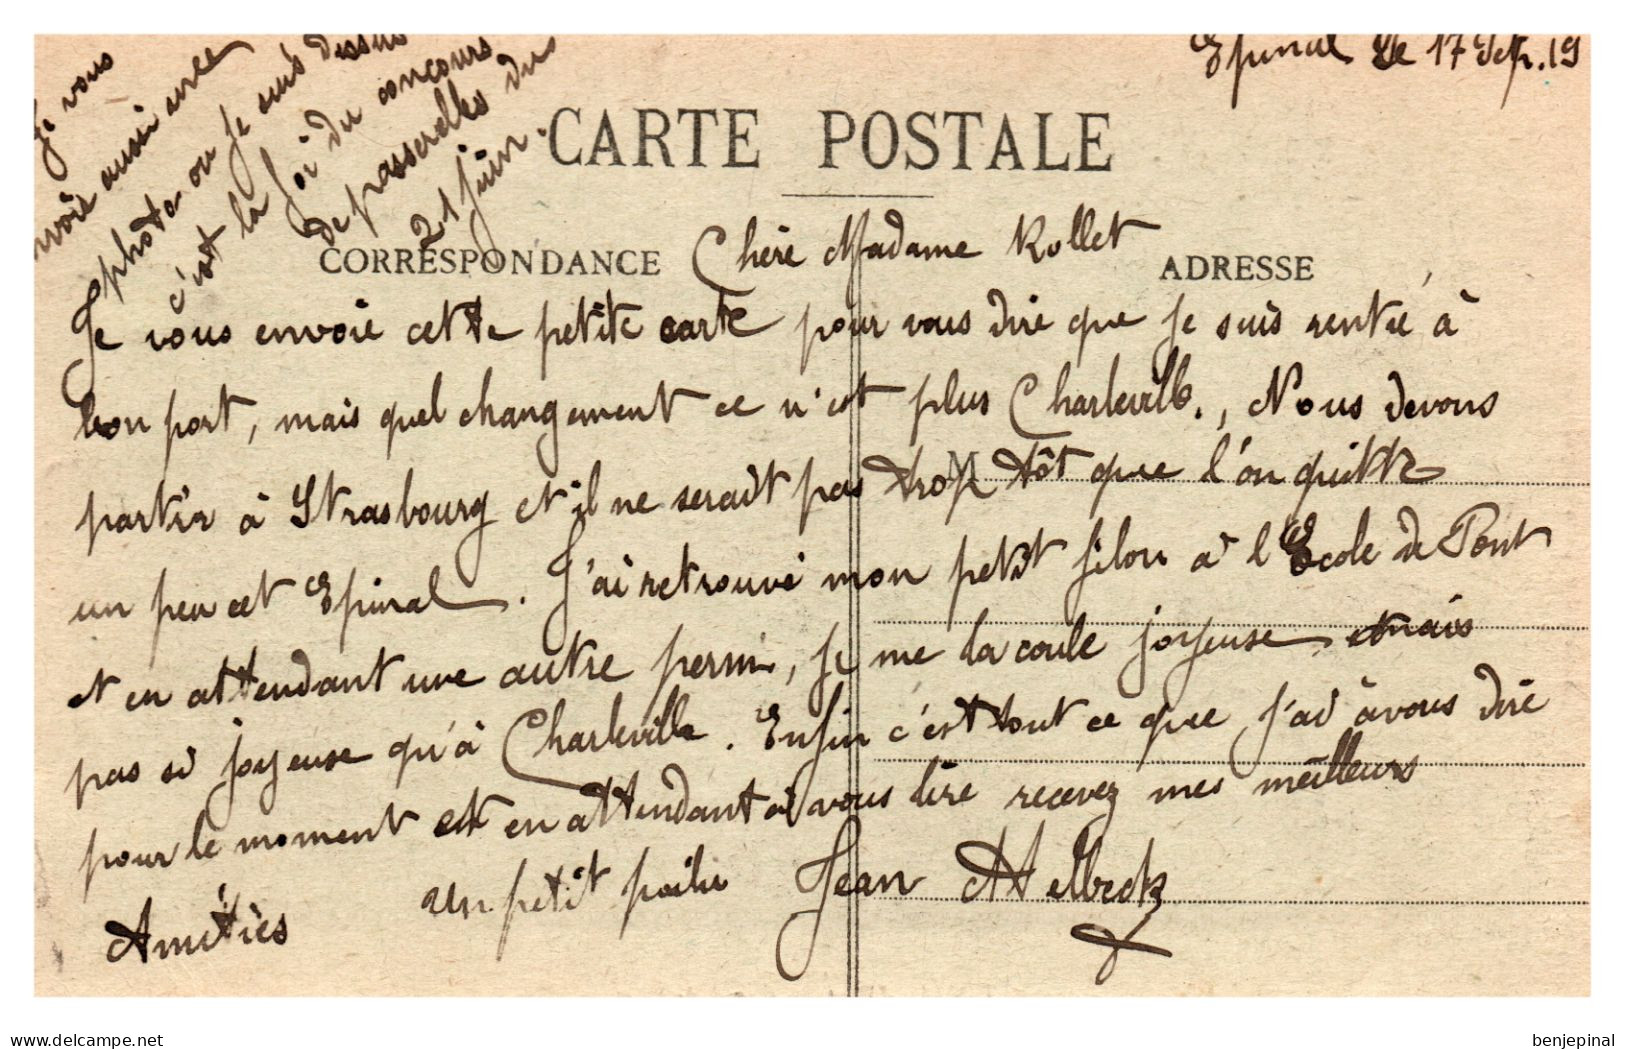 Epinal le 17 Sep. 19
Je vous
envoie aussi une
photo ou je suis dessus
c'est la foi du concours
de passerelles du
21 juin.
CARTE POSTALE
CORRESPONDANCE
ADRESSE
Chère Madame Rollet
Je vous envoie cette petite carte pour vous dire que je suis rentré à
bon port, mais quel changement ce n'est plus Charleville., Nous devons
partir à Strasbourg et il ne serait pas trop tôt que l'on quitte
un peu cet Epinal. J'ai retrouvé mon petit filon à l'Ecole de Pont
et en attendant une autre perm, je me la coule joyeuse mais
pas si joyeuse qu'à Charleville. Enfin c'est tout ce que j'ai à vous dire
pour le moment et en attendant à vous lire recevez mes meilleurs
Amitiés un petit poilu Jean
www.delcampe.net
benjepinal